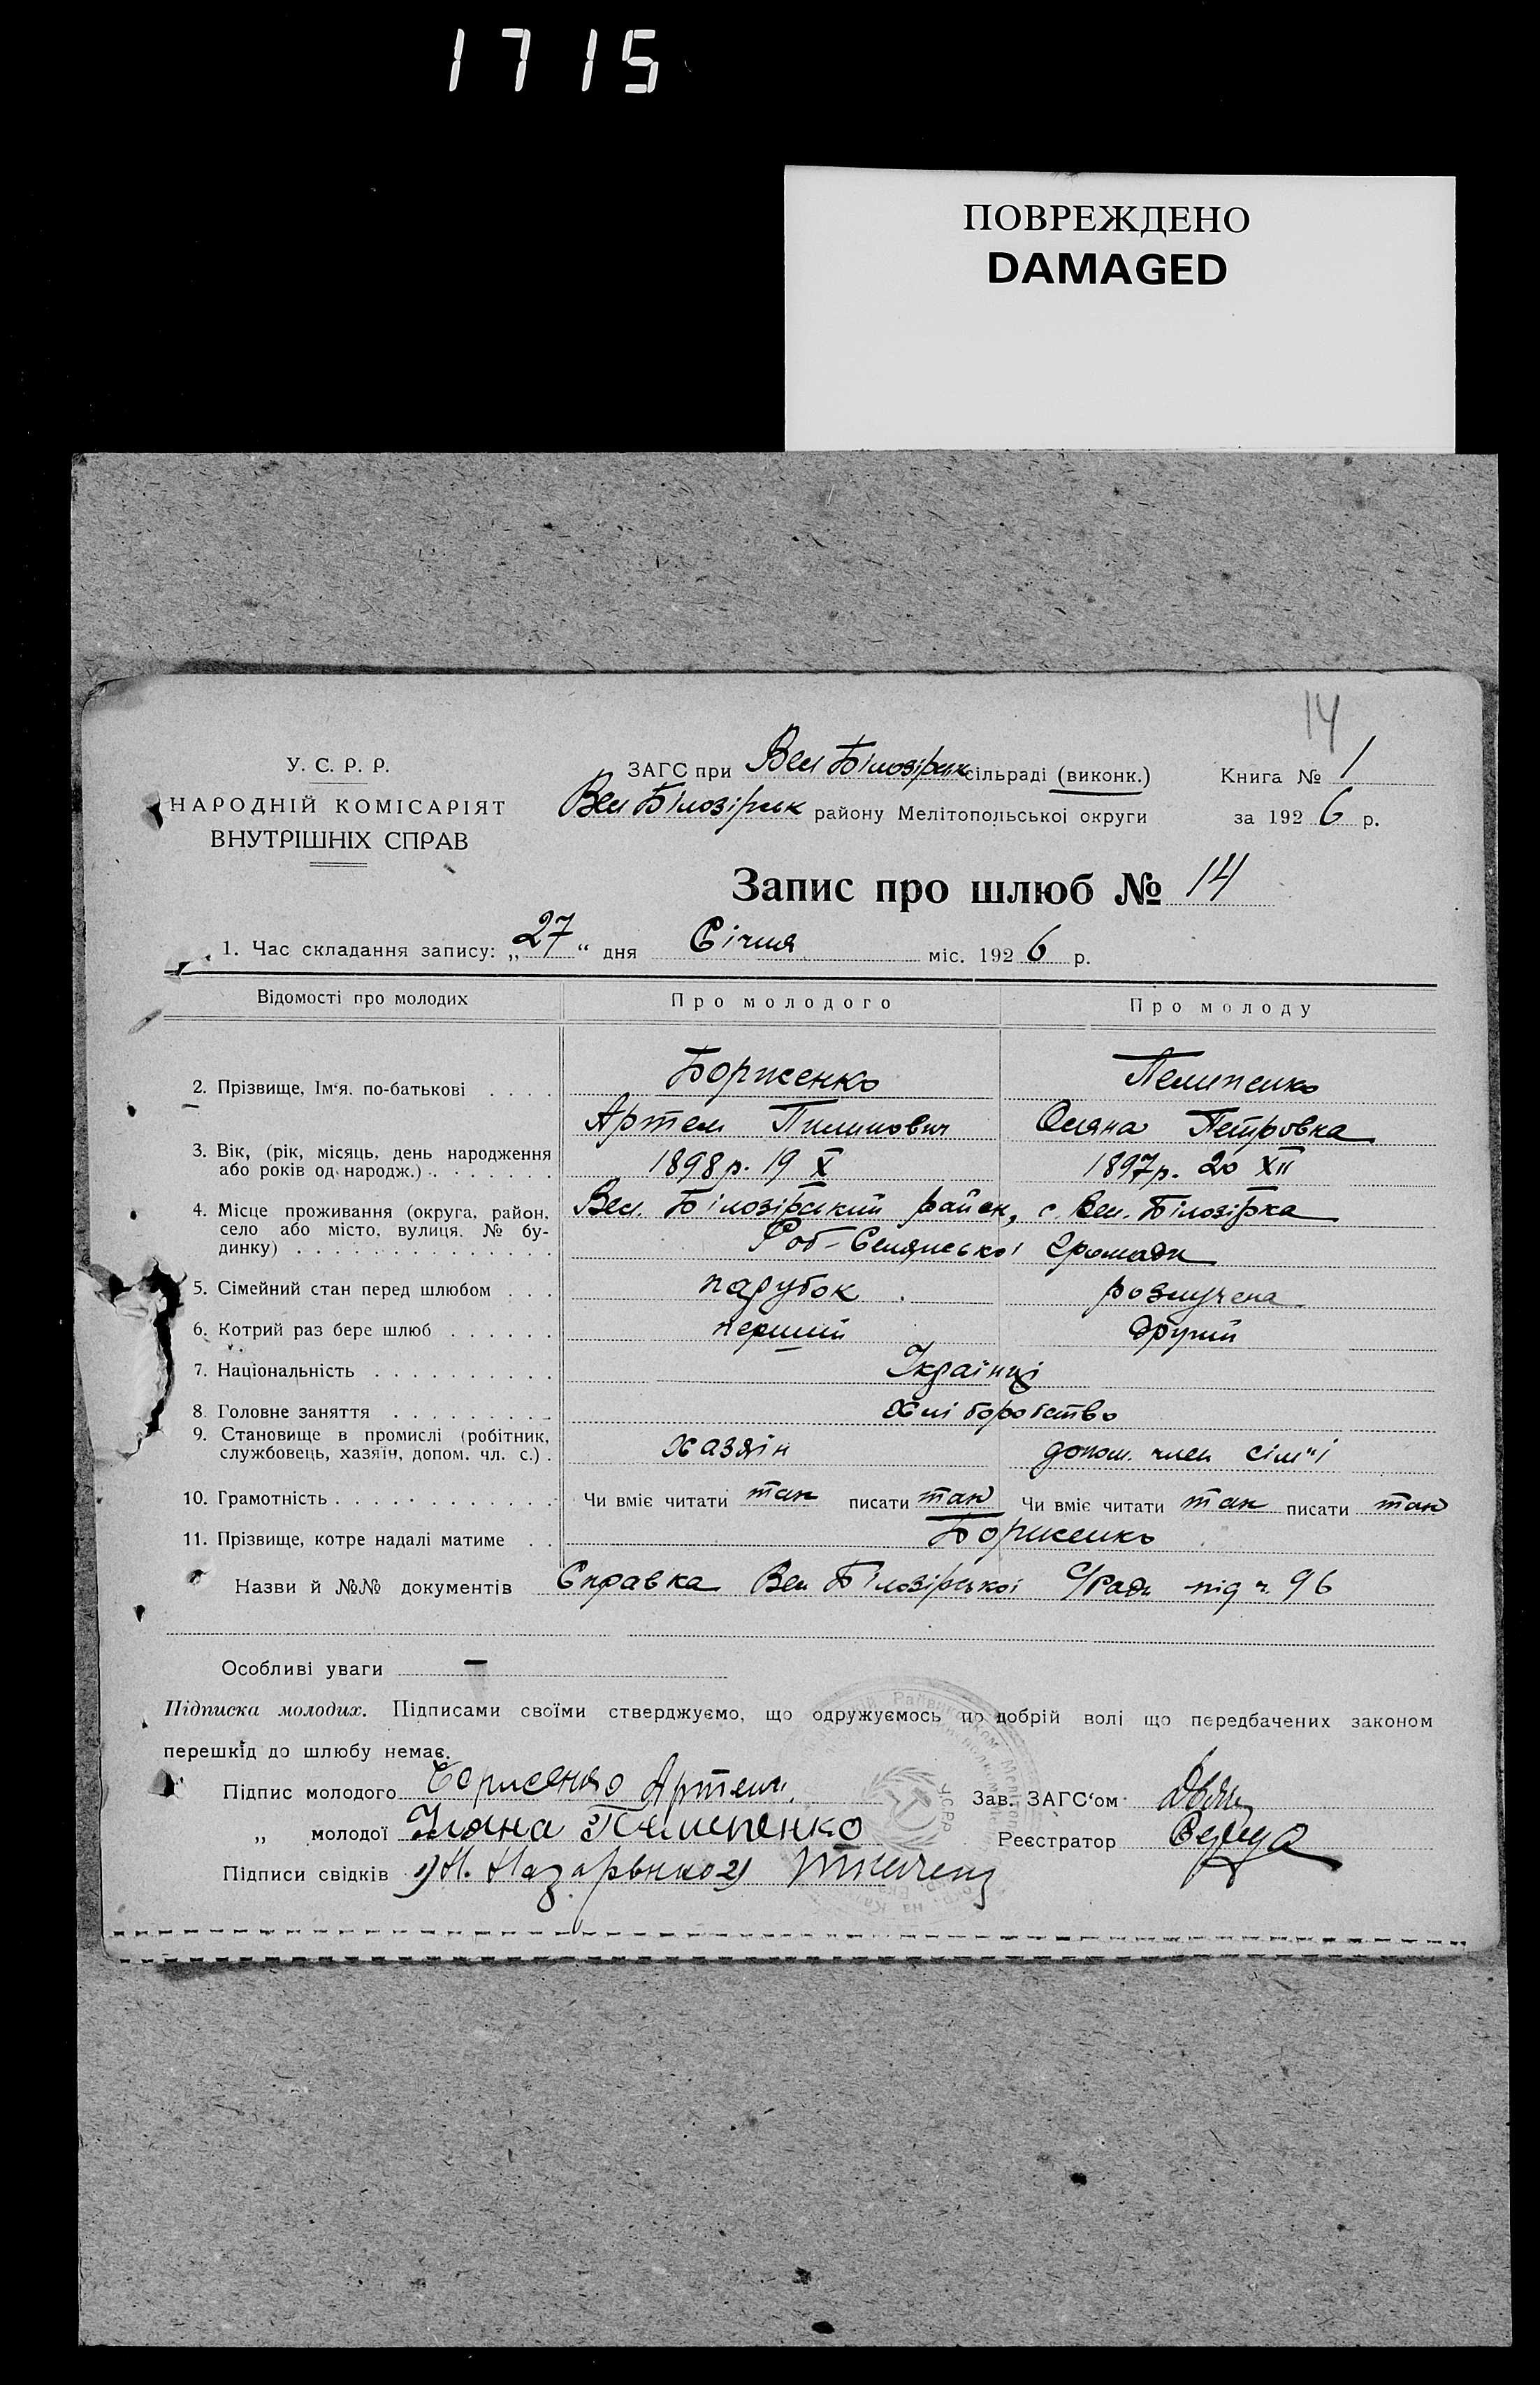 1715
ПОВРЕЖДЕНО
DAMAGED
14
У. С. Р. Р.
НАРОДНІЙ КОМІСАРІЯТ
ВНУТРІШНІХ СПРАВ
ЗАГС при Вел Білозірськ сільраді (виконк.)
Вел Білозірськ району Мелітопольської округи
Книга № 1
за 1926 р.
Запис про шлюб № 14
1. Час складання запису: „27“ дня Січня міс. 1926 р.
Відомості про молодих Про молодого Про молоду
2. Прізвище, Ім'я. по-батькові . . . . Борженко Пелипенко
Артем Пилипович Оляна Петровка
3. Вік, (рік, місяць, день народження
або років од. народж.) . . . . . . 1898 р. 19 X 1897 р. 20 XII
4. Місце проживання (округа, район, Вел. Білозірський район, с. Вел. Білозірка
село або місто, вулиця. № бу-
динку) . . . . . . . . . . . . . . Роб-Селянської Громади
5. Сімейний стан перед шлюбом . . . парубок розлучена
6. Котрий раз бере шлюб . . . . . . перший другий
7. Національність . . . . . . . . . . Українці
8. Головне заняття . . . . . . . . . Хліборобство
9. Становище в промислі (робітник,
службовець, хазяїн, допом. чл. с.) . хазяін допом. член сім"і
10. Грамотність . . . . . . . . . . . . Чи вміє читати так писати так Чи вміє читати так писати так
11. Прізвище, котре надалі матиме . . Борженко
Назви й №№ документів Справка Вел Білозірської С/Ради під ч. 96
Особливі уваги —
Підписка молодих. Підписами своїми стверджуємо, що одружуємось по добрій волі що передбачених законом
перешкід до шлюбу немає.
Підпис молодого Борженко Артем
Зав. ЗАГС'ом
„ молодої Уляна Пелипенко
Реєстратор
Підписи свідків 1) Н. Назарвнко 2)
УСРР